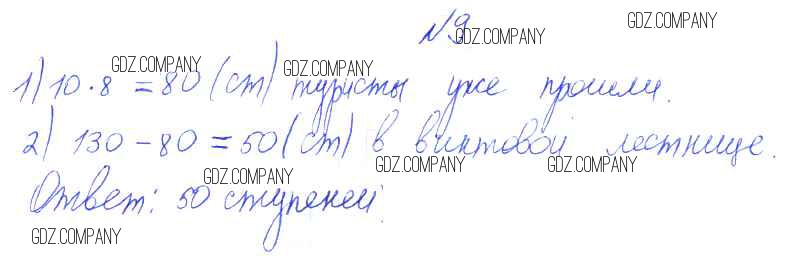 №9
GDZ.COMPANY
GDZ.COMPANY
GDZ.COMPANY
GDZ.COMPANY
1) 10 · 8 = 80 (ст) туристы уже прошли.
2) 130 - 80 = 50 (ст) в винтовой лестнице.
GDZ.COMPANY
GDZ.COMPANY
GDZ.COMPANY
Ответ: 50 ступеней.
GDZ.COMPANY